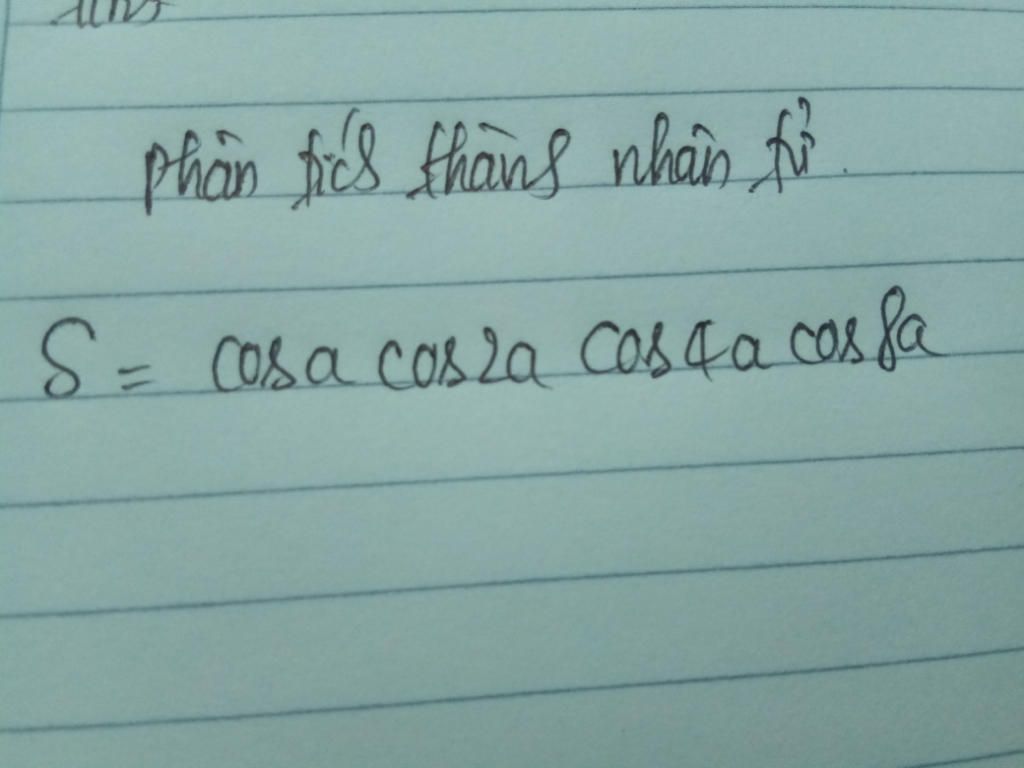 phân tích thành nhân tử.
S = cosa cos2a cos4a cos8a